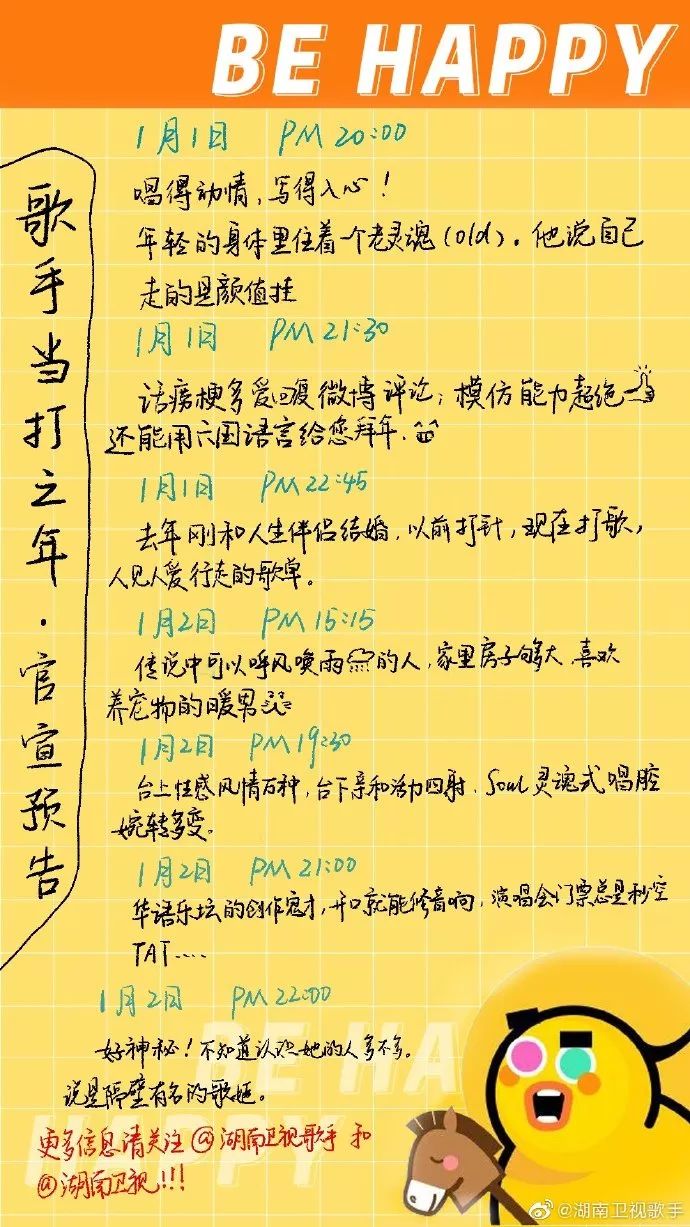 BE HAPPY
歌手当打之年·官宣预告
1月1日 PM 20:00
唱得动情,写得入心!
年轻的身体里住着一个老灵魂(old)。他说自己
走的是颜值挂
1月1日 PM 21:30
话痨梗多爱回复微博评论;模仿能力超绝
还能用六国语言给您拜年.
1月1日 PM 22:45
去年刚和人生伴侣结婚,以前打针,现在打歌,
人见人爱行走的歌单。
1月2日 PM 15:15
传说中可以呼风唤雨的人,家里房子够大,喜欢
养宠物的暖男
1月2日 PM 19:30
台上性感风情万种,台下亲和活力四射.Soul灵魂式唱腔
婉转多变。
1月2日 PM 21:00
华语乐坛的创作鬼才,开口就能修音响,演唱会门票总是秒空
TAT....
1月2日 PM 22:00
好神秘!不知道认识她的人多不多。
说是隔壁有名的歌姬。
更多信息请关注@湖南卫视歌手 和
@湖南卫视!!!
BE HAPPY
HAPPY
@湖南卫视歌手